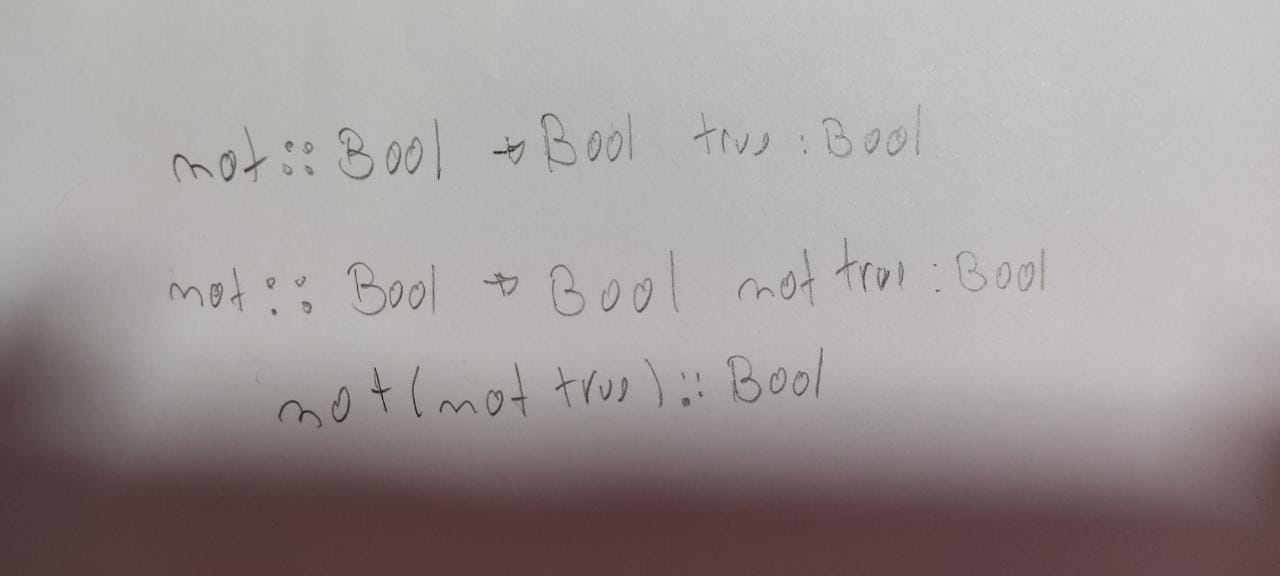 not :: Bool → Bool true : Bool
not :: Bool → Bool not true : Bool
not (not true) :: Bool